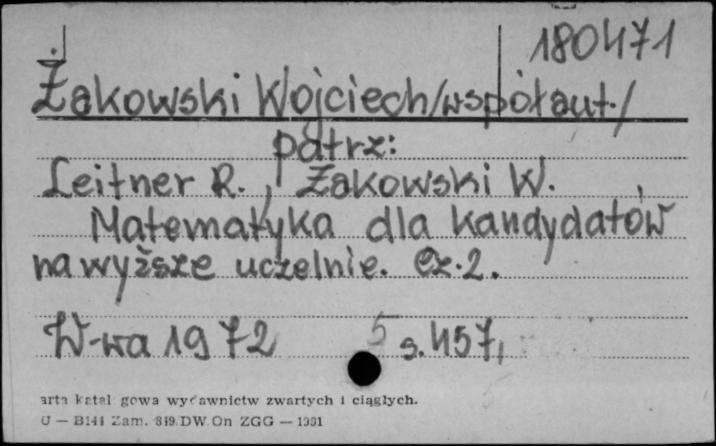 180471
Żakowski Wojciech/współaut./
patrz:
Leitner R., Żakowski W.
Matematyka dla kandydatów
na wyższe uczelnie. Cz.2.
W-wa 1972 5 s.457,
arta katal gowa wydawnictw zwartych i ciągłych.
U — B141 Zam. 819.DW.On ZGG — 1991